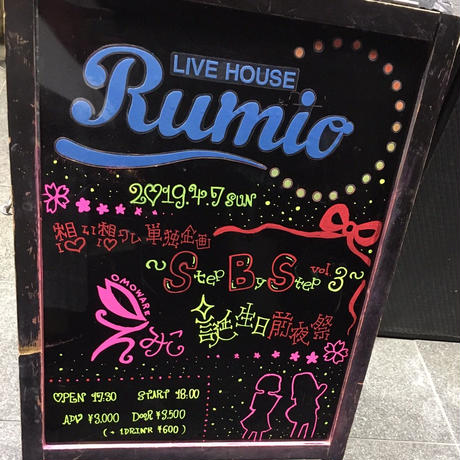 LIVE HOUSE
Rumio
2♡19.4.7 SUN
想い想ワレ 単独企画
～Step By Step vol.3～
OMOWARE
誕生日前夜祭
OPEN 17:30 START 18:00
ADV ¥3,000 DOOR ¥3,500
(+1DRINK ¥600)